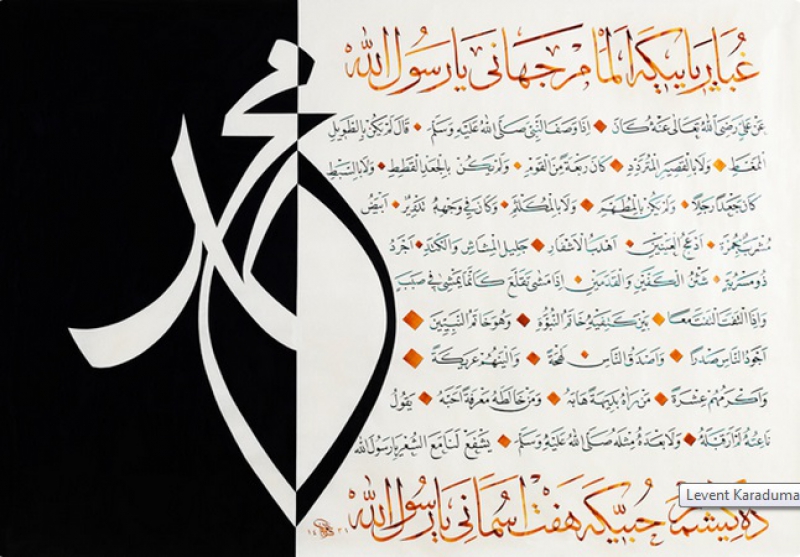 محمد
غُبَارِ پَايِيكَه آلمَام جِهَانِى يَا رَسُولَ اللّٰه
عَنْ عَلِيٍّ رَضِيَ اللّٰهُ تَعَالٰى عَنْهُ كَانَ ◆ اِذَا وَصَفَ النَّبِيَّ صَلَّى اللّٰهُ عَلَيْهِ وَسَلَّمَ ◆ قَالَ لَمْ يَكُنْ بِالطَّوِيلِ
الْمُمَغَّطِ ◆ وَلَا بِالْقَصِيرِ الْمُتَرَدِّدِ ◆ كَانَ رَبْعَةً مِنَ الْقَوْمِ ◆ وَلَمْ يَكُنْ بِالْجَعْدِ الْقَطَطِ ◆ وَلَا بِالسَّبْطِ
كَانَ جَعْدًا رَجِلًا ◆ وَلَمْ يَكُنْ بِالْمُطَهَّمِ ◆ وَلَا بِالْمُكَلْثَمِ ◆ وَكَانَ فِي وَجْهِهِ تَدْوِيرٌ ◆ اَبْيَضُ
مُشْرَبٌ بِحُمْرَةٍ ◆ اَدْعَجُ الْعَيْنَيْنِ ◆ اَهْدَبُ الْاَشْفَارِ ◆ جَلِيلُ الْمُشَاشِ وَالْكَتَدِ ◆ اَجْرَدُ
ذُو مَسْرُبَةٍ ◆ شَثْنُ الْكَفَّيْنِ وَالْقَدَمَيْنِ ◆ اِذَا مَشٰى تَقَلَّعَ كَاَنَّمَا يَمْشِي فِي صَبَبٍ
وَاِذَا الْتَفَتَ الْتَفَتَ مَعًا ◆ بَيْنَ كَتِفَيْهِ خَاتَمُ النُّبُوَّةِ ◆ وَهُوَ خَاتَمُ النَّبِيِّينَ ◆
اَجْوَدُ النَّاسِ صَدْرًا ◆ وَاَصْدَقُ النَّاسِ لَهْجَةً ◆ وَاَلْيَنُهُمْ عَرِيكَةً ◆
وَاَكْرَمُهُمْ عِشْرَةً ◆ مَنْ رَاٰهُ بَدِيهَةً هَابَهُ ◆ وَمَنْ خَالَطَهُ مَعْرِفَةً اَحَبَّهُ ◆ يَقُولُ
نَاعِتُهُ لَمْ اَرَ قَبْلَهُ ◆ وَلَا بَعْدَهُ مِثْلَهُ صَلَّى اللّٰهُ عَلَيْهِ وَسَلَّمَ ◆ يَشْفَعْ لَنَا مَعَ الشَّعْرِ يَا رَسُولَ اللّٰه
دَه كيشمم حُبيّكَه هَفْت اٰسمَانى يَا رَسُولَ اللّٰه
١٤٣١
Levent Karaduma